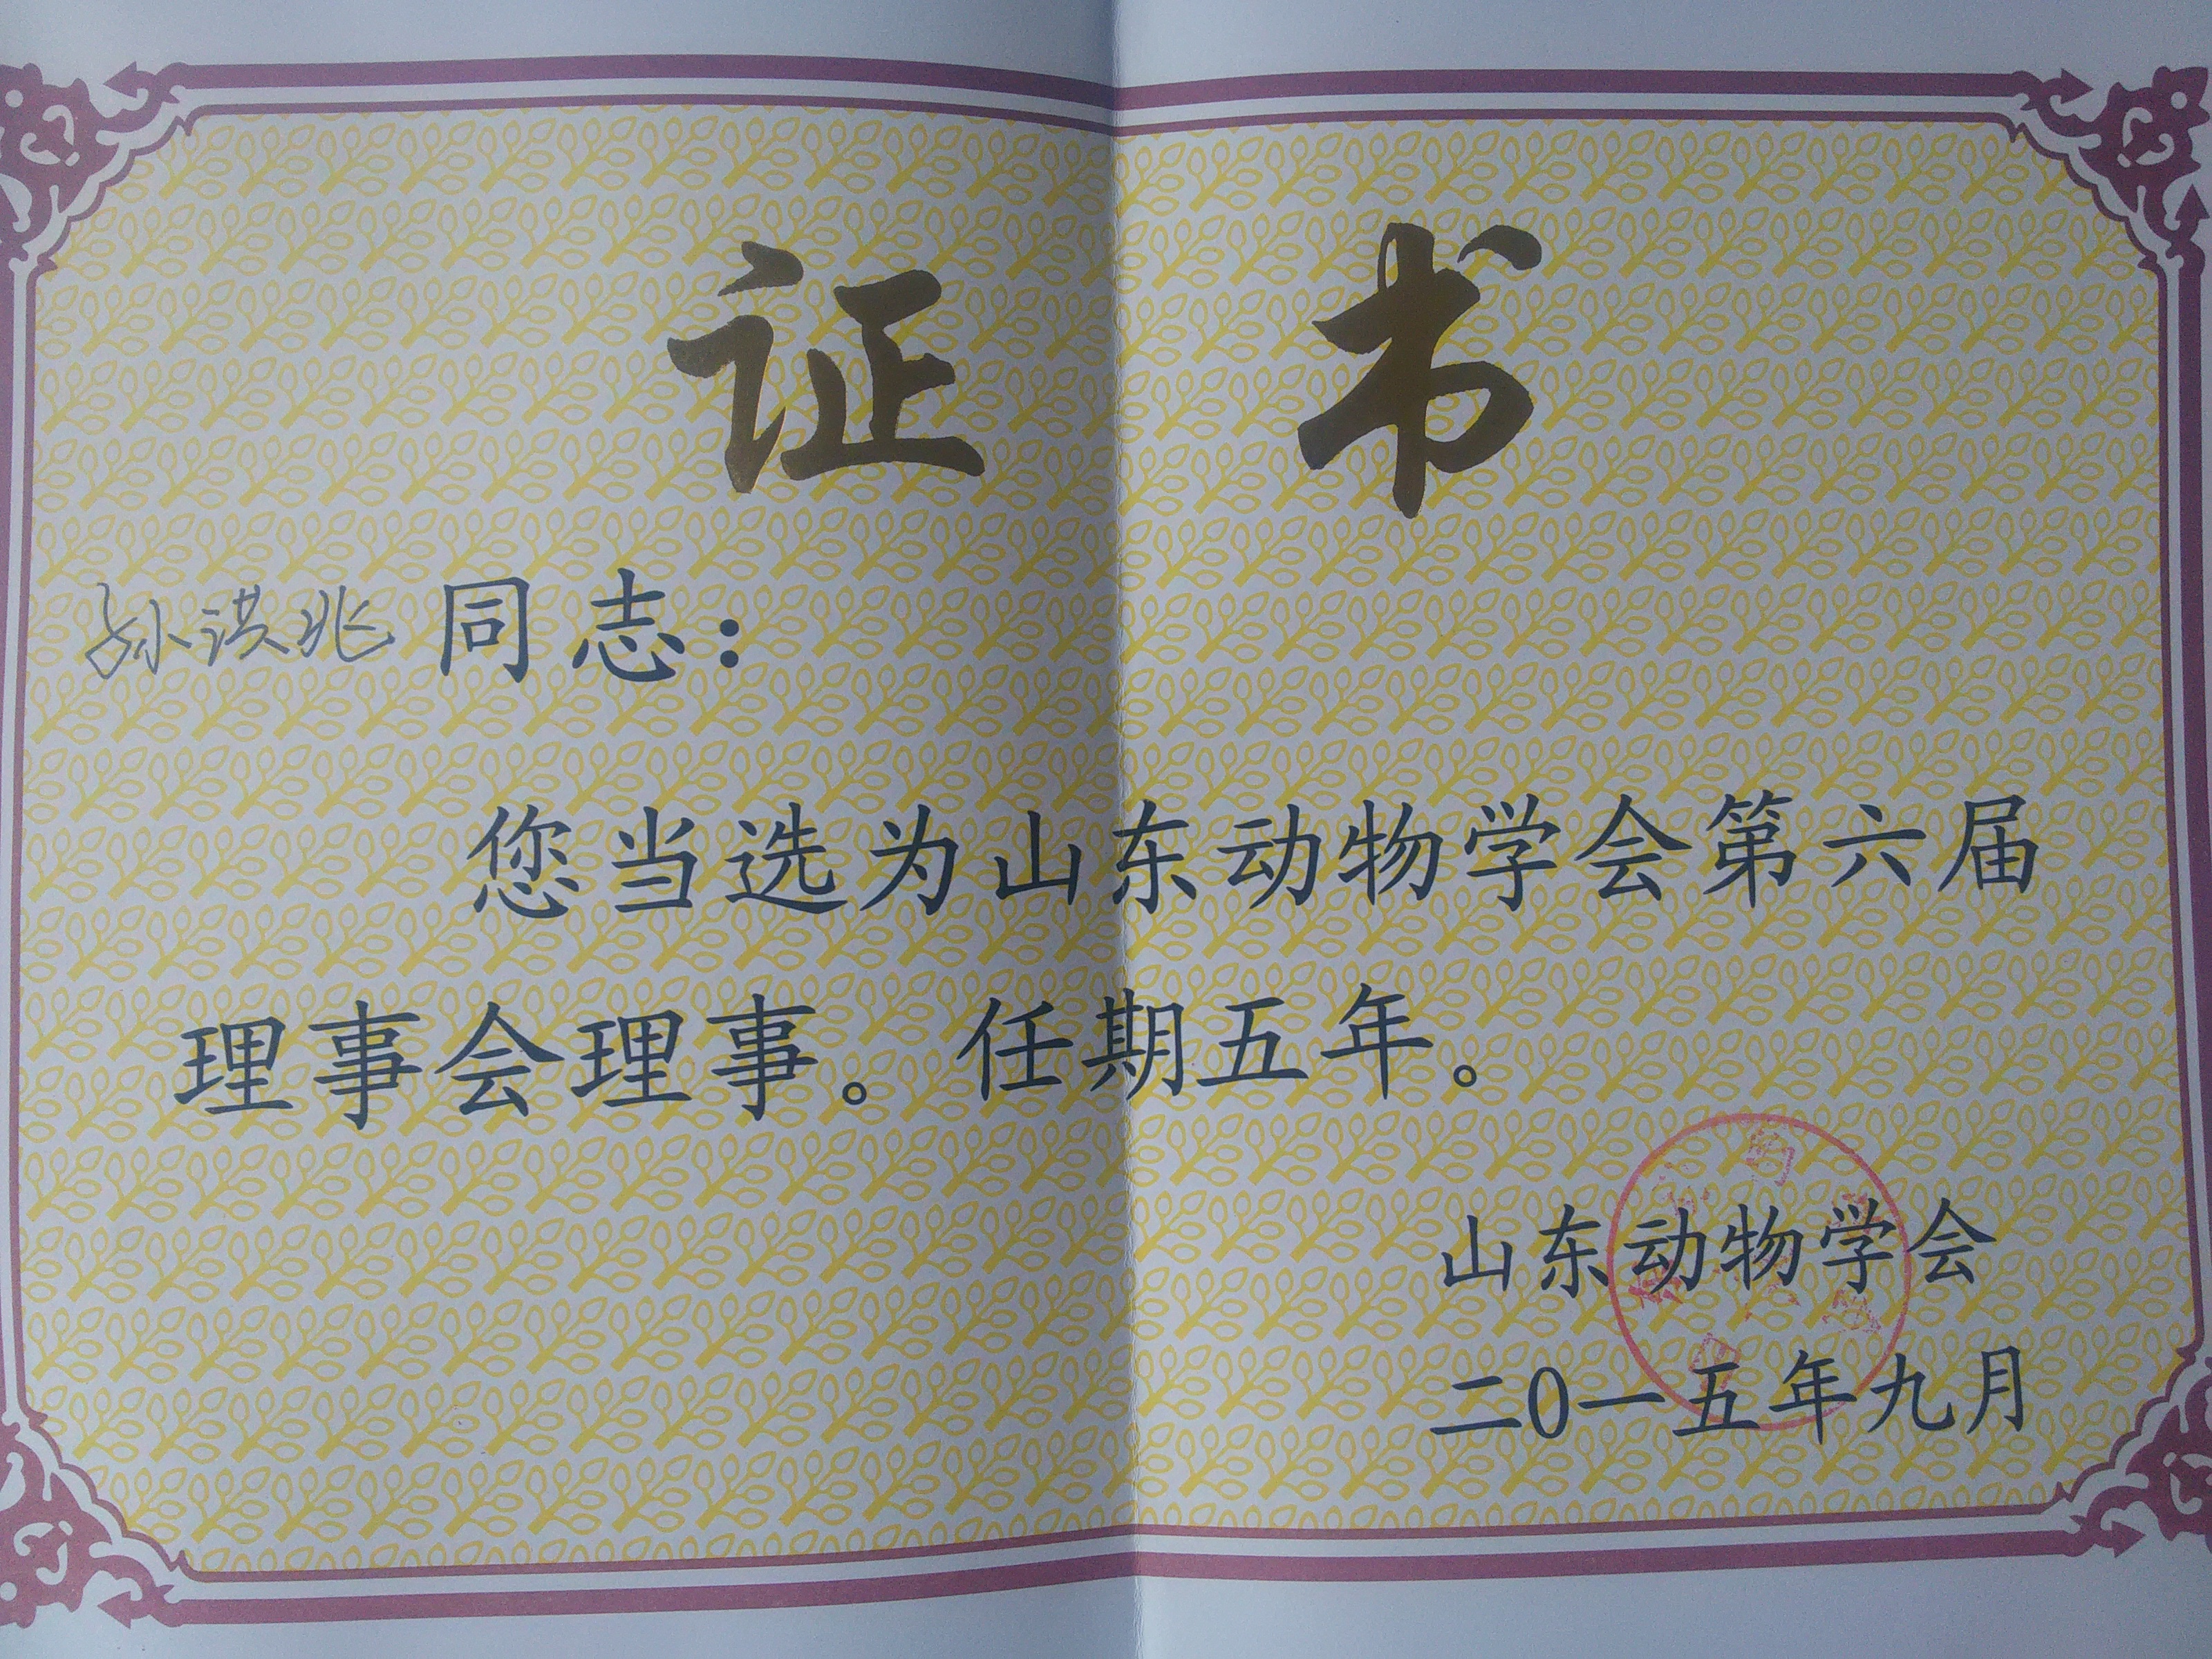 证书
孙洪兆同志：
您当选为山东动物学会第六届
理事会理事。任期五年。
山东动物学会
二0一五年九月